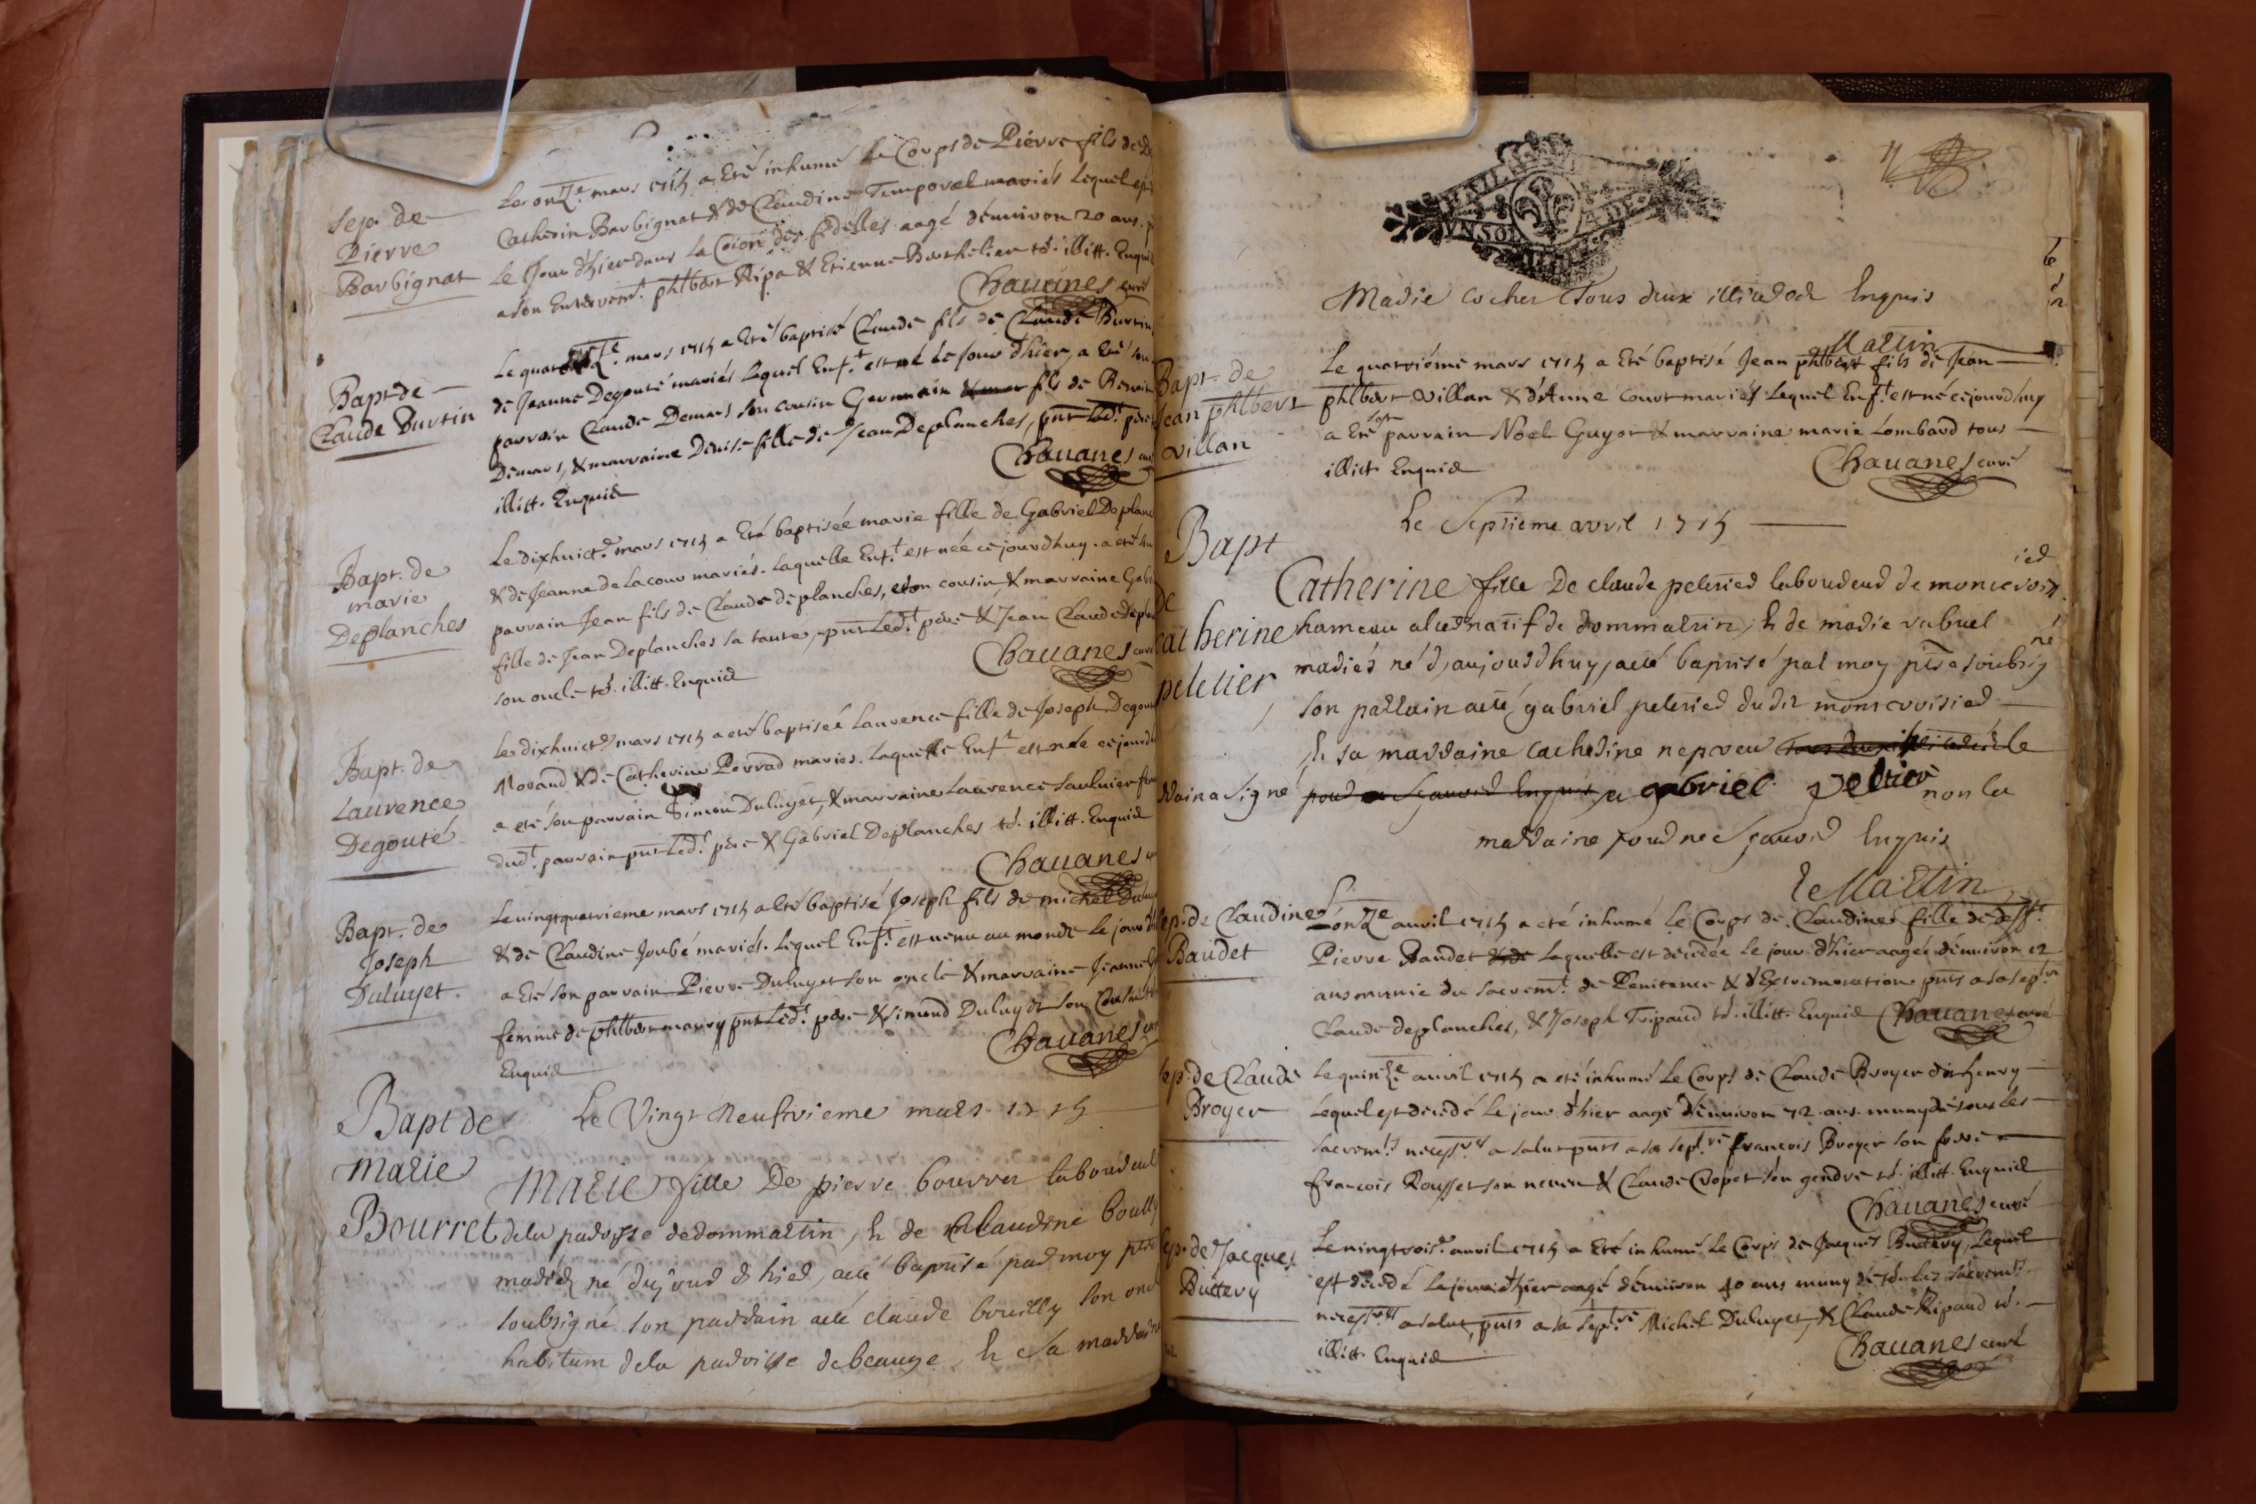 Sep. de
Pierre
Barbignat
Le onz.e mars 1715 a Eté inhumé Le Corps de Pierre fils de
Catherin Barbignat & de Claudine Temporal mariés Lequel est
Le Jour d'hier dans la Coion des fidelles aagé d'enuiron 20 ans.
a son Enterremt. phlbert Ripa & Etienne Barthelier td. illitt. Enquis
Chauanes curé
Bapt de
Claude Burtin
Le quat mars 1715 a Eté baptisé Claude fils de Claude Burtin
de Jeanne Degouté mariés Lequel Enft. est né Le Jour d'hier, a Eté son
parrain Claude Demars son cousin Germain & mar fils de Benoit
Demars, & marraine Denise fille de Jean Deplanches, pnt Led.t père
illitt. Enquis
Chauanes curé
Bapt. de
marie
Deplanches
Le dixhuict.e mars 1715 a Eté baptisée marie fille de Gabriel Deplanc
& de Jeanne de Lacour mariés. Laquelle Enf.t est née ce jourdhuy. a eté son
parrain Jean fils de Claude deplanches, son cousin & marraine Gabri
fille de Jean Deplanches sa tante, pnt Led.t père & Jean Claude depla
son oncle td. illitt. Enquis
Chauanes curé
Bapt. de
Laurence
Degouté
Le dixhuict.e mars 1715 a eté baptisée Laurence fille de Joseph Degout
Morand & de Catherine Perrad mariés. Laquelle Enf.t est née ce jourdh
a eté son parrain Simon Duluyet, & marraine Laurence Saulnier fe
dud.t parrain pnt Led.t père & Gabriel Deplanches td. illitt. Enquis
Chauanes
Bapt. de
Joseph
Duluyet.
Le vingtquatrieme mars 1715 a Eté baptisé Joseph fils de michel Duluy
& de Claudine Joubé mariés. Lequel Enf.t est venu au monde Le jour d'h
a Eté son parrain Pierre Duluyet son oncle & marraine Jeanne
femme de phlbert marry pnt Led.t père & Simond Duluyet son
Enquis
Chauanes
Bapt de
Marie
Bourret
Le Vingt Neufvieme mars 1715
Marie fille De pierre bourret laboureur
de la paroisse de dommartin, & de Claudine boully
mariés né du jour d hier, a eté baptisé par moy ptre
soubsigné son parrain a eté claude bouilly son oncl
habitam de la paroisse de beauge & sa marraine
Marie cocher Tous deux illiteré Enquis
Martin
Bapt. de
Jean phlbert
villan
Le quatriéme mars 1715 a Eté baptisé Jean phlbert fils de Jean
phlbert villan & d'Anne Court mariés. Lequel Enf.t est né cejourd'huy
a Eté son parrain Noel Guyot & marraine marie Lombard tous
illitt. Enquis
Chauanes curé
Le Septieme avril 1715
Bapt
De
catherine
peletier
Catherine fille De claude peletier laboureur de montcroiz
hameau alternatif de dommatrin, & de marie rubuel
mariés né d'aujourdhuy, a eté baptisé pal moy ptre soubsigné
son pallain a eté gabriel peletier dudit montcroisier
& sa marraine cathesine nepveu
rain a signé
gabriel peltier non la
marraine pour ne Sçauoir Enquis
Martin
Sep. de Claudine
Baudet
L'onz.e auril 1715 a eté inhumé Le Corps de Claudine fille de deff.t
Pierre Baudet Laquelle est decedée Le jour d'hier aagée d'enuiron 12
ans munie du sacrem.t de Penitence & d'Extremonction pnts a sa sep.re
Claude deplanches, & Joseph Tripaud td. illitt. Enquis Chauanes curé
Sep. de Claude
Broyer
Le quinz.e auril 1715 a eté inhumé Le Corps de Claude Broyer dit henry
Lequel est decedé Le jour d'hier aagé d'enuiron 72 ans muny de tous les
sacrem.ts necess.res a salut pnts a sa sept.re francois Broyer son frere
francois Rousset son neveu & Claude Cropet son gendre td. illitt. Enquis
Chauanes curé
Sep. de Jacques
Buttery
Le vingtrois.e auril 1715 a Eté inhumé Le Corps de Jacques Buttery, Lequel
est decedé Le jour d'hier aagé d'enuiron 40 ans muny de td. les sacrem.ts
necess.res a salut, pnts a sa sep.re Michel Duluyet, & Claude Ripaud td.
illitt. Enquis
Chauanes curé